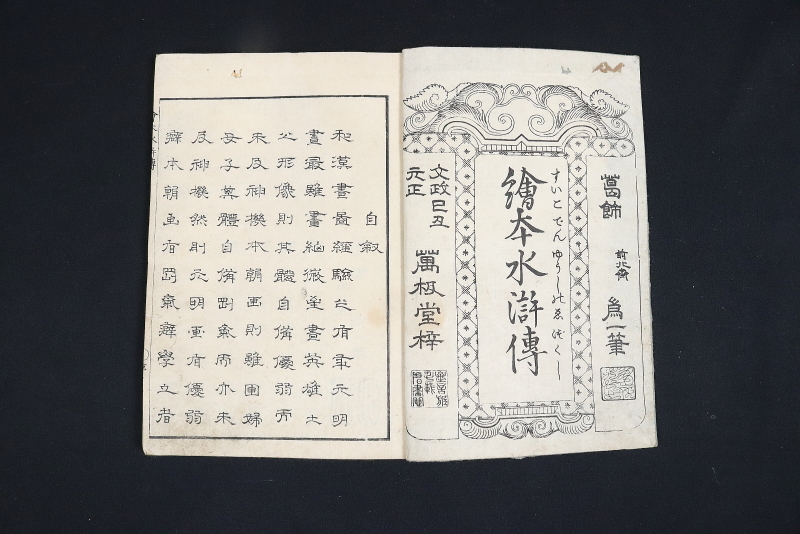 葛飾 前北斎 為一筆
すいこでんゆうしのゑづくし
繪本水滸傳
文政己丑
元正
萬极堂梓
自叙
和漢畫圖經驗也有年元明
畫最雖畫細微至畫英雄之
人形像則其體自備優弱而
未及神機本朝画則雖画婦
女子其體自備剛氣而亦未
及神機然則元明画有優弱
癖本朝画有罰氣癖學之者